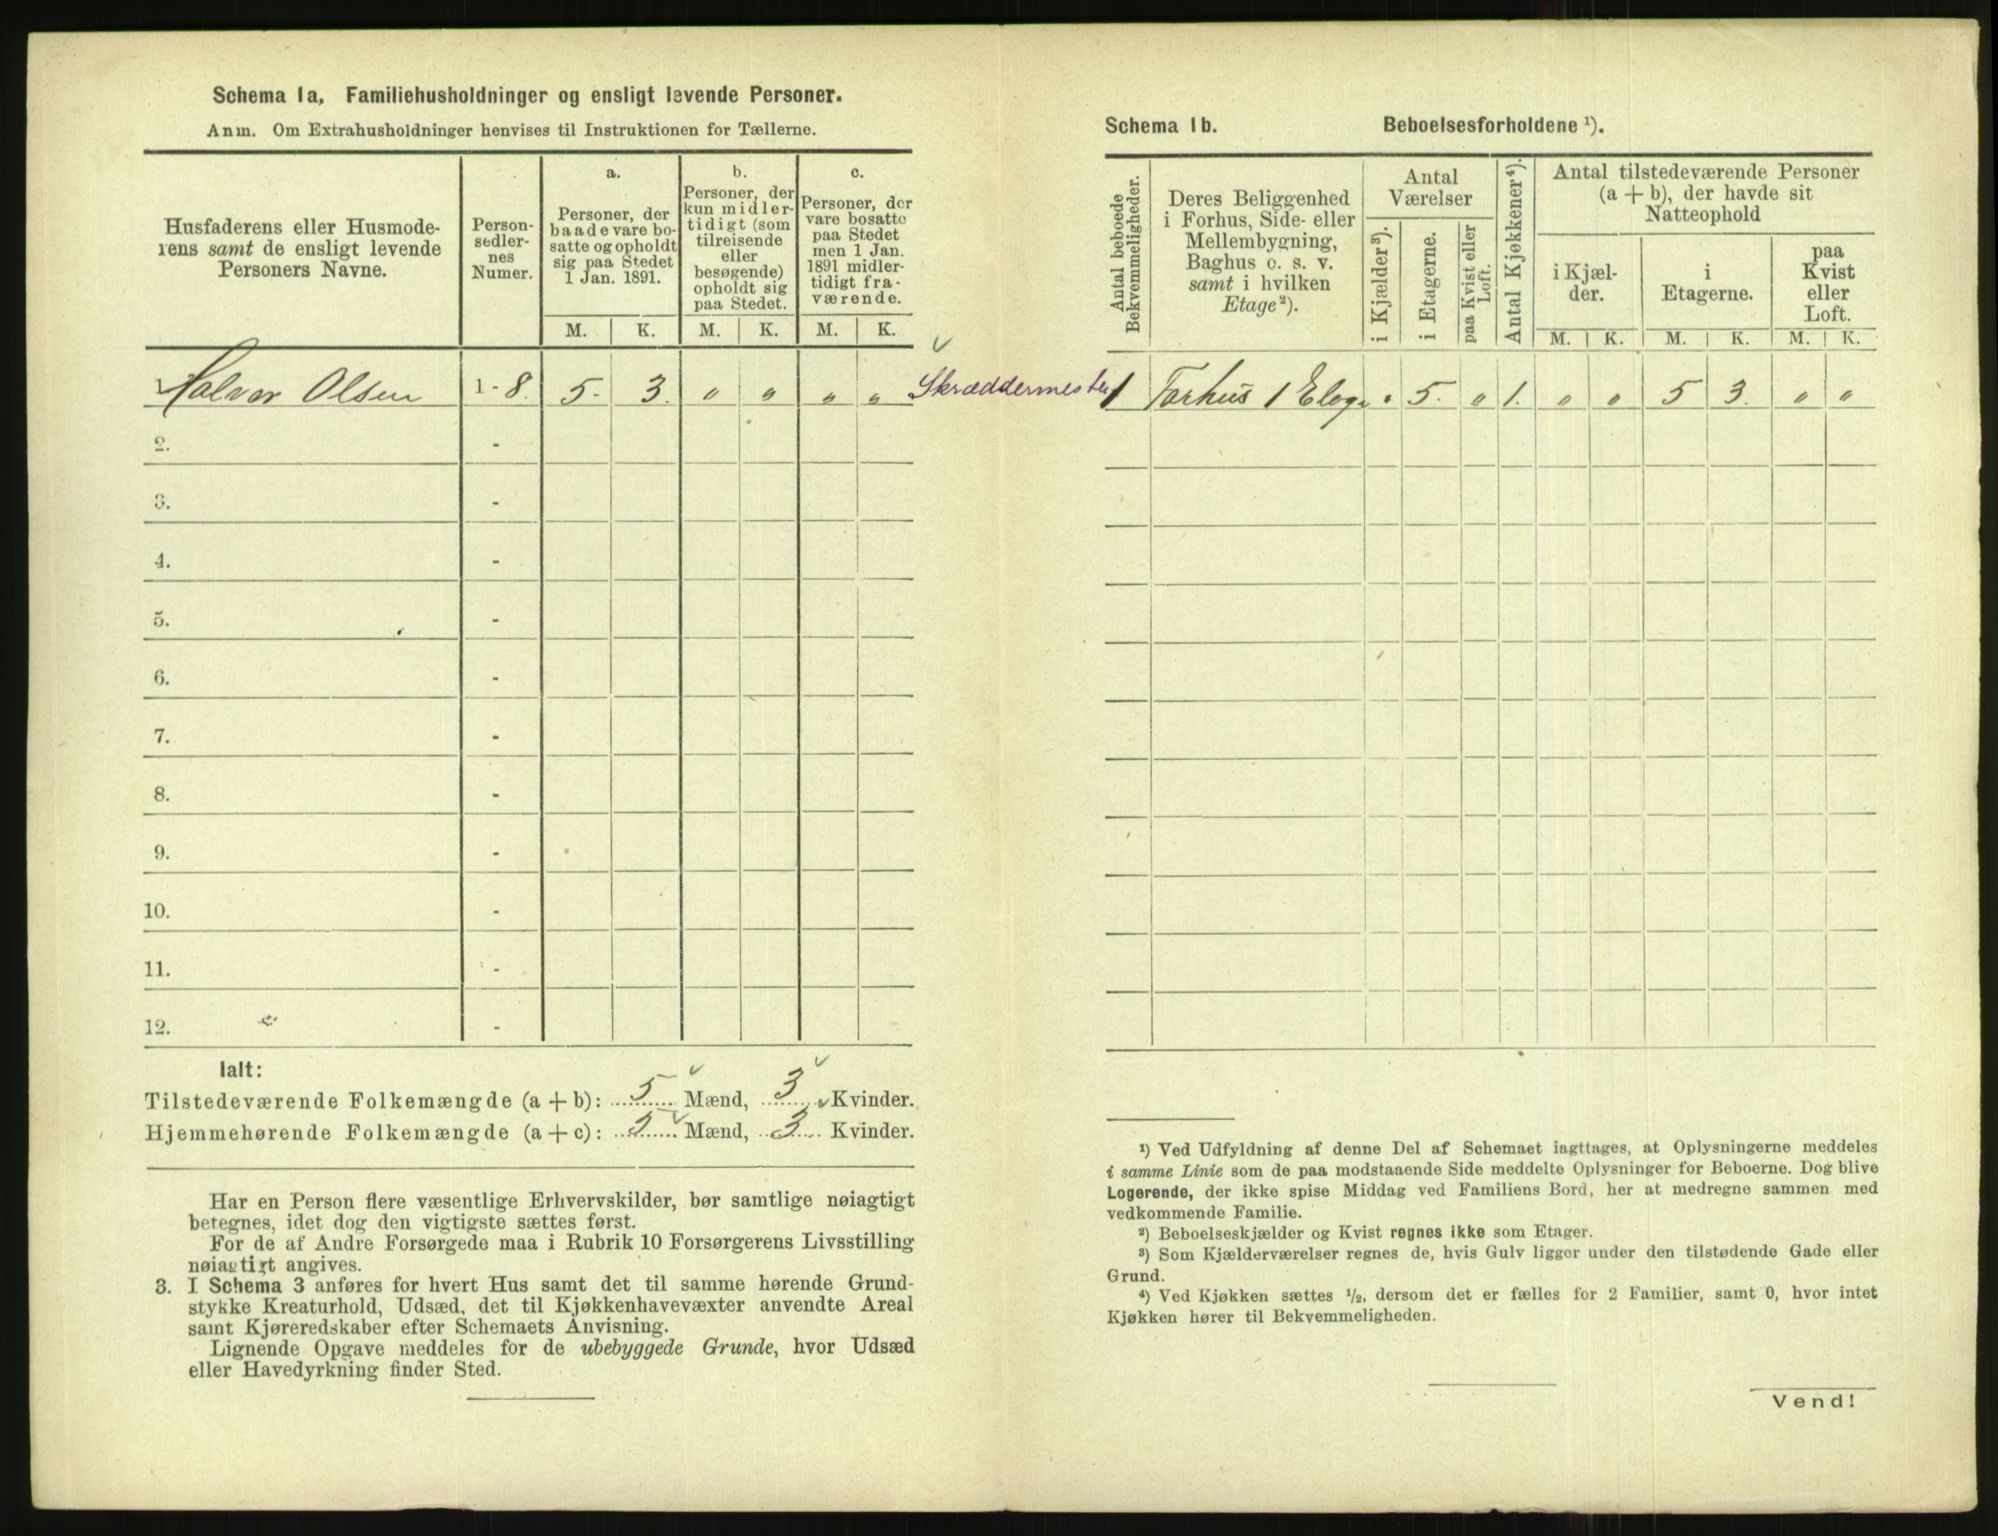 Schema 1a, Familiehusholdninger og ensligt levende Personer.
Anm. Om Extrahusholdninger henvises til Instruktionen for Tællerne.
Husfaderens eller Husmode-
rens samt de ensligt levende
Personers Navne.
Person-
sedler-
nes
Numer.
a.
Personer, der
baade vare bo-
satte og opholdt
sig paa Stedet
1 Jan. 1891.
b.
Personer, der
kun midler-
tidigt (som
tilreisende
eller
besøgende)
opholdt sig
paa Stedet.
c.
Personer, der
vare bosatte
paa Stedet
men 1 Jan.
1891 midler-
tidigt fra-
værende.
M. K. M. K. M. K.
Halvor Olsen 1 - 8. 5. 3. " " " " Skræddermester
2. -
3. -
4. -
5. -
6. -
7. -
8. -
9. -
10. -
11. -
12. -
Ialt:
Tilstedeværende Folkemængde (a + b): 5 Mænd, 3 Kvinder.
Hjemmehørende Folkemængde (a + c): 5 Mænd, 3 Kvinder.
Har en Person flere væsentlige Erhvervskilder, bør samtlige nøiagtigt
betegnes, idet dog den vigtigste sættes først.
For de af Andre Forsørgede maa i Rubrik 10 Forsørgerens Livsstilling
nøiagtigt angives.
3. I Schema 3 anføres for hvert Hus samt det til samme hørende Grund-
stykke Kreaturhold, Udsæd, det til Kjøkkenhavevæxter anvendte Areal
samt Kjøreredskaber efter Schemaets Anvisning.
Lignende Opgave meddeles for de ubebyggede Grunde, hvor Udsæd
eller Havedyrkning finder Sted.
Schema 1b. Beboelsesforholdene ¹).
Antal beboede
Bekvemmeligheder.
Deres Beliggenhed
i Forhus, Side- eller
Mellembygning,
Baghus o. s. v.
samt i hvilken
Etage²).
Antal
Værelser
i Kjælder³).
i Etagerne.
paa Kvist eller
Loft.
Antal Kjøkkener⁴).
Antal tilstedeværende Personer
(a + b), der havde sit
Natteophold
i Kjæl-
der.
i
Etagerne.
paa
Kvist
eller
Loft.
M. K. M. K. M. K.
1 Forhus 1 Etage " 5. " 1. " " 5 3. " "
¹) Ved Udfyldning af denne Del af Schemaet iagttages, at Oplysningerne meddeles
i samme Linie som de paa modstaaende Side meddelte Oplysninger for Beboerne. Dog blive
Logerende, der ikke spise Middag ved Familiens Bord, her at medregne sammen med
vedkommende Familie.
²) Beboelseskjælder og Kvist regnes ikke som Etager.
³) Som Kjælderværelser regnes de, hvis Gulv ligger under den tilstødende Gade eller
Grund.
⁴) Ved Kjøkken sættes ½, dersom det er fælles for 2 Familier, samt 0, hvor intet
Kjøkken hører til Bekvemmeligheden.
Vend!